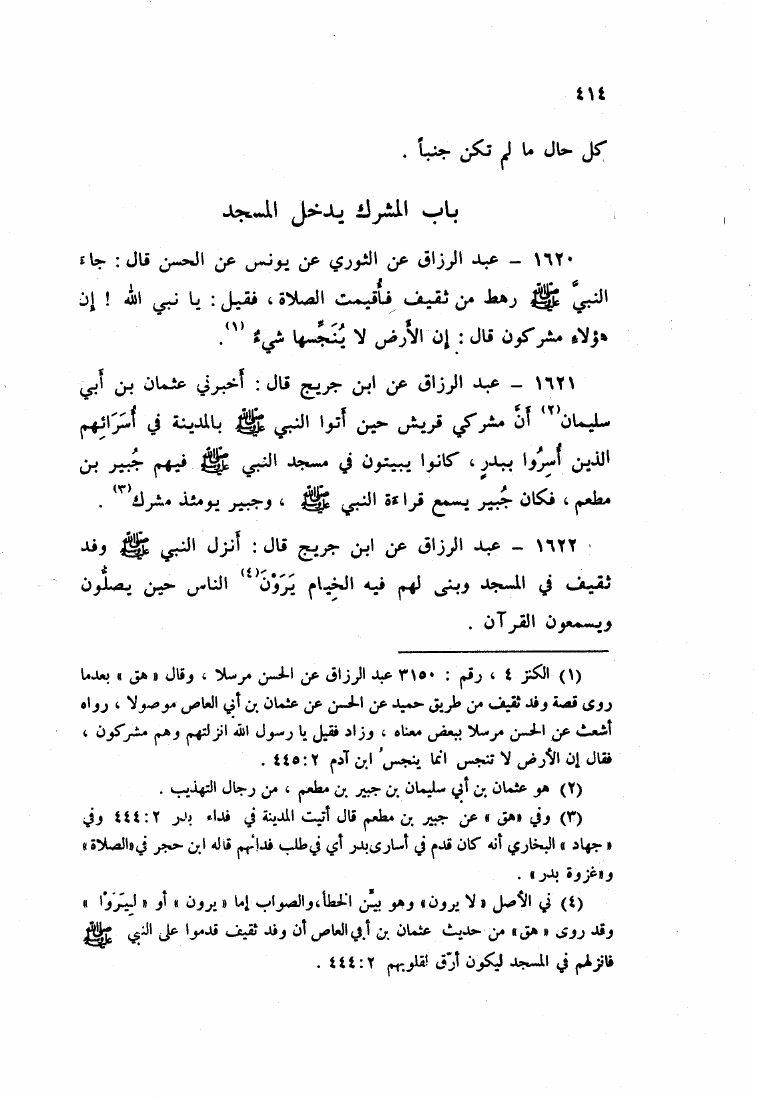 ٤١٤
كل حال ما لم تكن جنباً .
باب المشرك يدخل المسجد
١٦٢٠ – عبد الرزاق عن الثوري عن يونس عن الحسن قال : جاء
النبيَّ ﷺ رهط من ثقيف فأُقيمت الصلاة ، فقيل : يا نبي الله ! إن
هؤلاء مشركون قال : إن الأَرض لا يُنَجِّسها شيءٌ (١) .
١٦٢١ – عبد الرزاق عن ابن جريج قال : أَخبرني عثمان بن أَبي
سليمان(٢) أَنَّ مشركي قريش حين أَتوا النبي ﷺ بالمدينة في أُسَرَائِهم
الذين أُسِرُوا ببدرٍ ، كانوا يبيتون في مسجد النبي ﷺ فيهم جُبير بن
مطعم ، فكان جُبير يسمع قراءة النبي ﷺ ، وجبير يومئذ مشرك(٣) .
١٦٢٢ – عبد الرزاق عن ابن جريج قال : أَنزل النبي ﷺ وفد
ثقيف في المسجد وبنى لهم فيه الخِيام يَرَوْنَ(٤) الناس حين يصلُّون
ويسمعون القرآن .
(١) الكنز ٤ ، رقم : ٣١٥٠ عبد الرزاق عن الحسن مرسلا ، وقال « هق » بعدما
روى قصة وفد ثقيف من طريق حميد عن الحسن عن عثمان بن أبي العاص موصولا ، رواه
أشعث عن الحسن مرسلا ببعض معناه ، وزاد فقيل يا رسول الله انزلتهم وهم مشركون ،
فقال إن الأرض لا تنجس انما ينجس ابن آدم ٢:٤٤٥ .
(٢) هو عثمان بن أبي سليمان بن جبير بن مطعم ، من رجال التهذيب .
(٣) وفي «هق» عن جبير بن مطعم قال أتيت المدينة في فداء بدر ٢:٤٤٤ وفي
« جهاد » البخاري أنه كان قدم في أسارى بدر أي في طلب فدائهم قاله ابن حجر في «الصلاة»
و«غزوة بدر» .
(٤) في الأصل « لا يرون» وهو بيّن الخطأ،والصواب إما « يرون » أو « لِيَرَوْا »
وقد روى « هق» من حديث عثمان بن أبي العاص أن وفد ثقيف قدموا على النبي ﷺ
فانزلهم في المسجد ليكون أرّق لقلوبهم ٢:٤٤٤ .